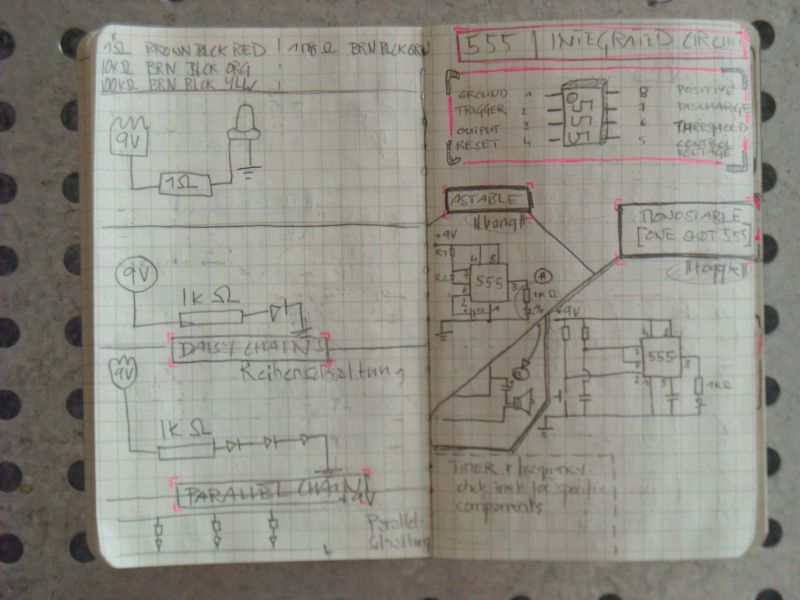 1Ω BROWN BLCK RED
BRN BLCK GRN
10KΩ BRN BLCK ORG
100KΩ BRN BLCK YLLW
9V
1Ω
9V
1KΩ
DAISY CHAINS
Reihenschaltung
9V
1KΩ
PARALLEL CHAIN
+9V
Parallel-
schaltung
555 INTEGRATED CIRCUIT
GROUND 1
TRIGGER 2
OUTPUT 3
RESET 4
555
8 POSITIVE
7 DISCHARGE
6 THRESHOLD
5 CONTROL
VOLTAGE
ASTABLE
MONOSTABLE
[ONE SHOT 555]
toggle
+9V
R1
R2
555
1KΩ
+9V
555
1KΩ
TIMER + frequency
check inet for specific
components